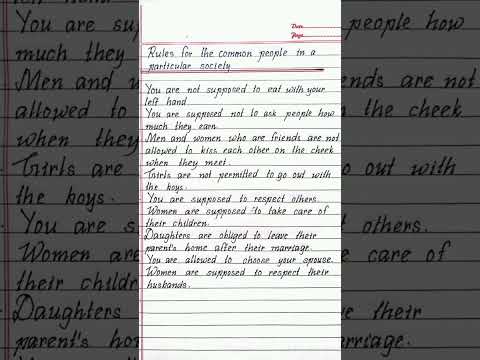 Date
Page
Rules for the common people in a
particular society
You are not supposed to eat with your
left hand
You are supposed not to ask people how
much they earn
Men and women who are friends are not
allowed to kiss each other on the cheek
when they meet.
Girls are not permitted to go out with
the boys.
You are supposed to respect others.
Women are supposed to take care of
their children.
Daughters are obliged to leave their
parent's home after their marriage.
You are allowed to choose your spouse.
Women are supposed to respect their
husbands.